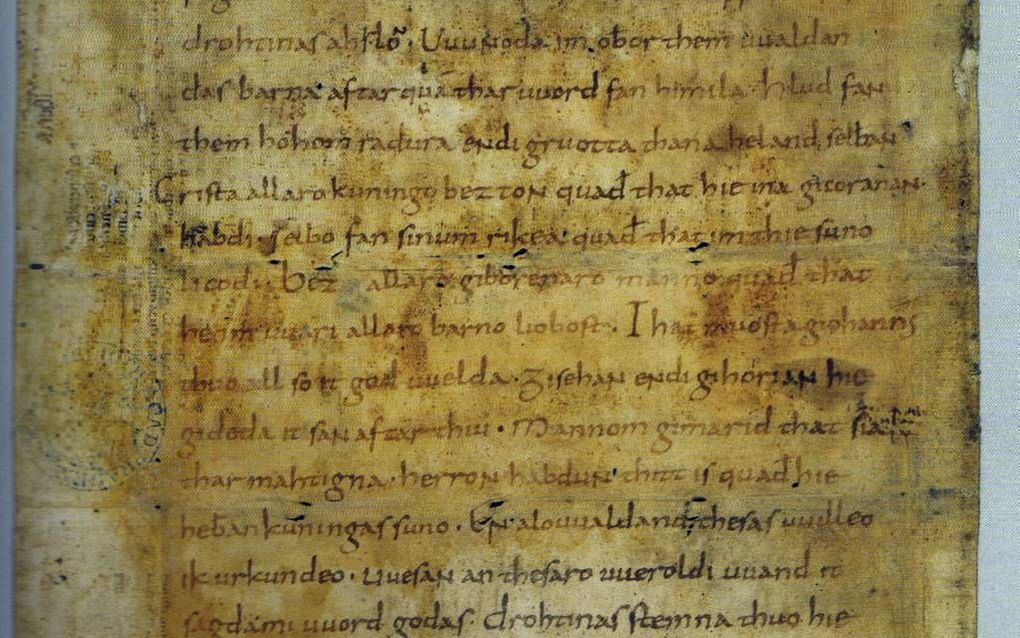 drohtinas ahslō · Uuunoda im obar them uualdan
das barna· aftar quā thar uuord fan himila hlud fan
them hohom radura endi gruotta thana heland selban
Crista allaro kuningo bezton quađ that hie ina gicoranan·
habdi · selbo fan sinum rikea· quađ that im thie suno
licodi· bez allaro giboranaro manno quađ that
he im uuari allaro barno liobost · That muosta giohannes
thuo all so it god uuelda · gisehan endi gihorian hie
gideda it san aftar thiu · Mannom gimarid that sia
thar mahtigna · herron habdun· thitt is quađ hie
heban kuningas suno · En alouualdand thesas uuilleo
ik urkundeo · uuesan an thesaro uueroldi uuand it
sagda mi uuord godas· drohtinas stemna thuo hie